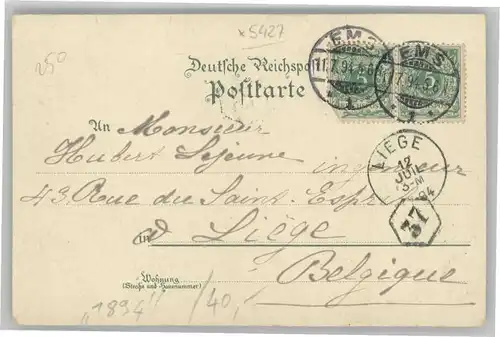 x5427
250
Deutsche Reichspost
Postkarte
EMS
11.7.94.
1
EMS
7.94.
1
5
An Monsieur
Hubert Lejeune ingénieur
43, Rue du Saint-Esprit
LIEGE
12
JUIL
3-M
94
37
in à Liège
Belgique
Wohnung
(Straße und Hausnummer)
„1894" /40,